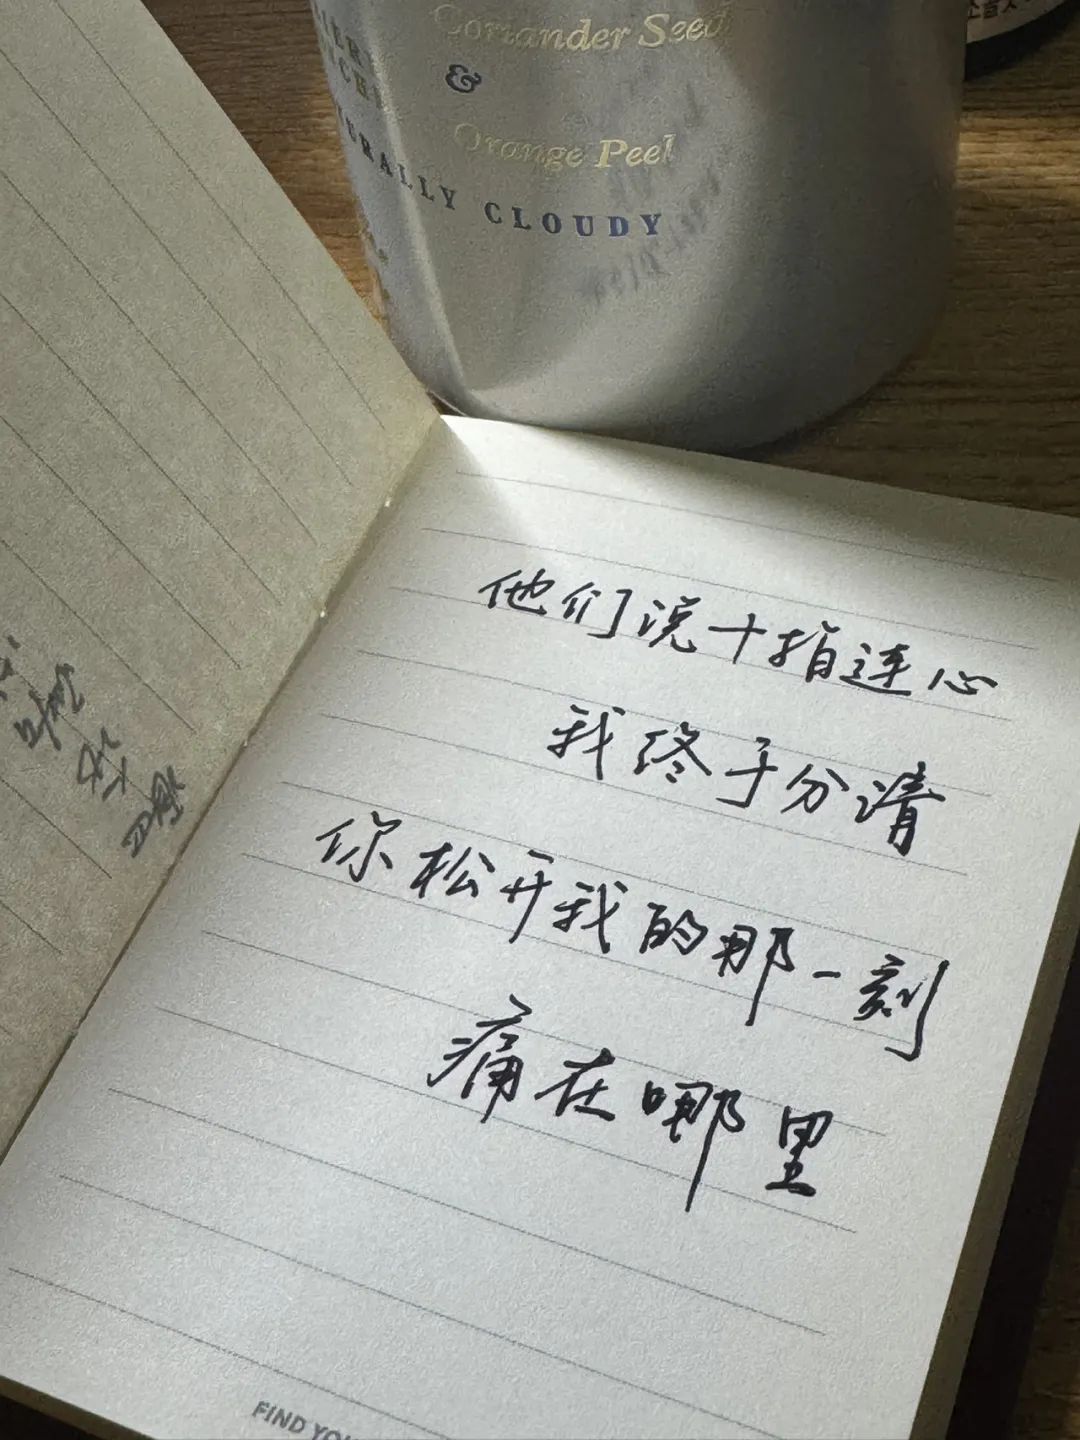 Coriander Seed
&
Orange Peel
CLOUDY
他们说十指连心
我终于分请
你松开我的那一刻
痛在哪里
FIND